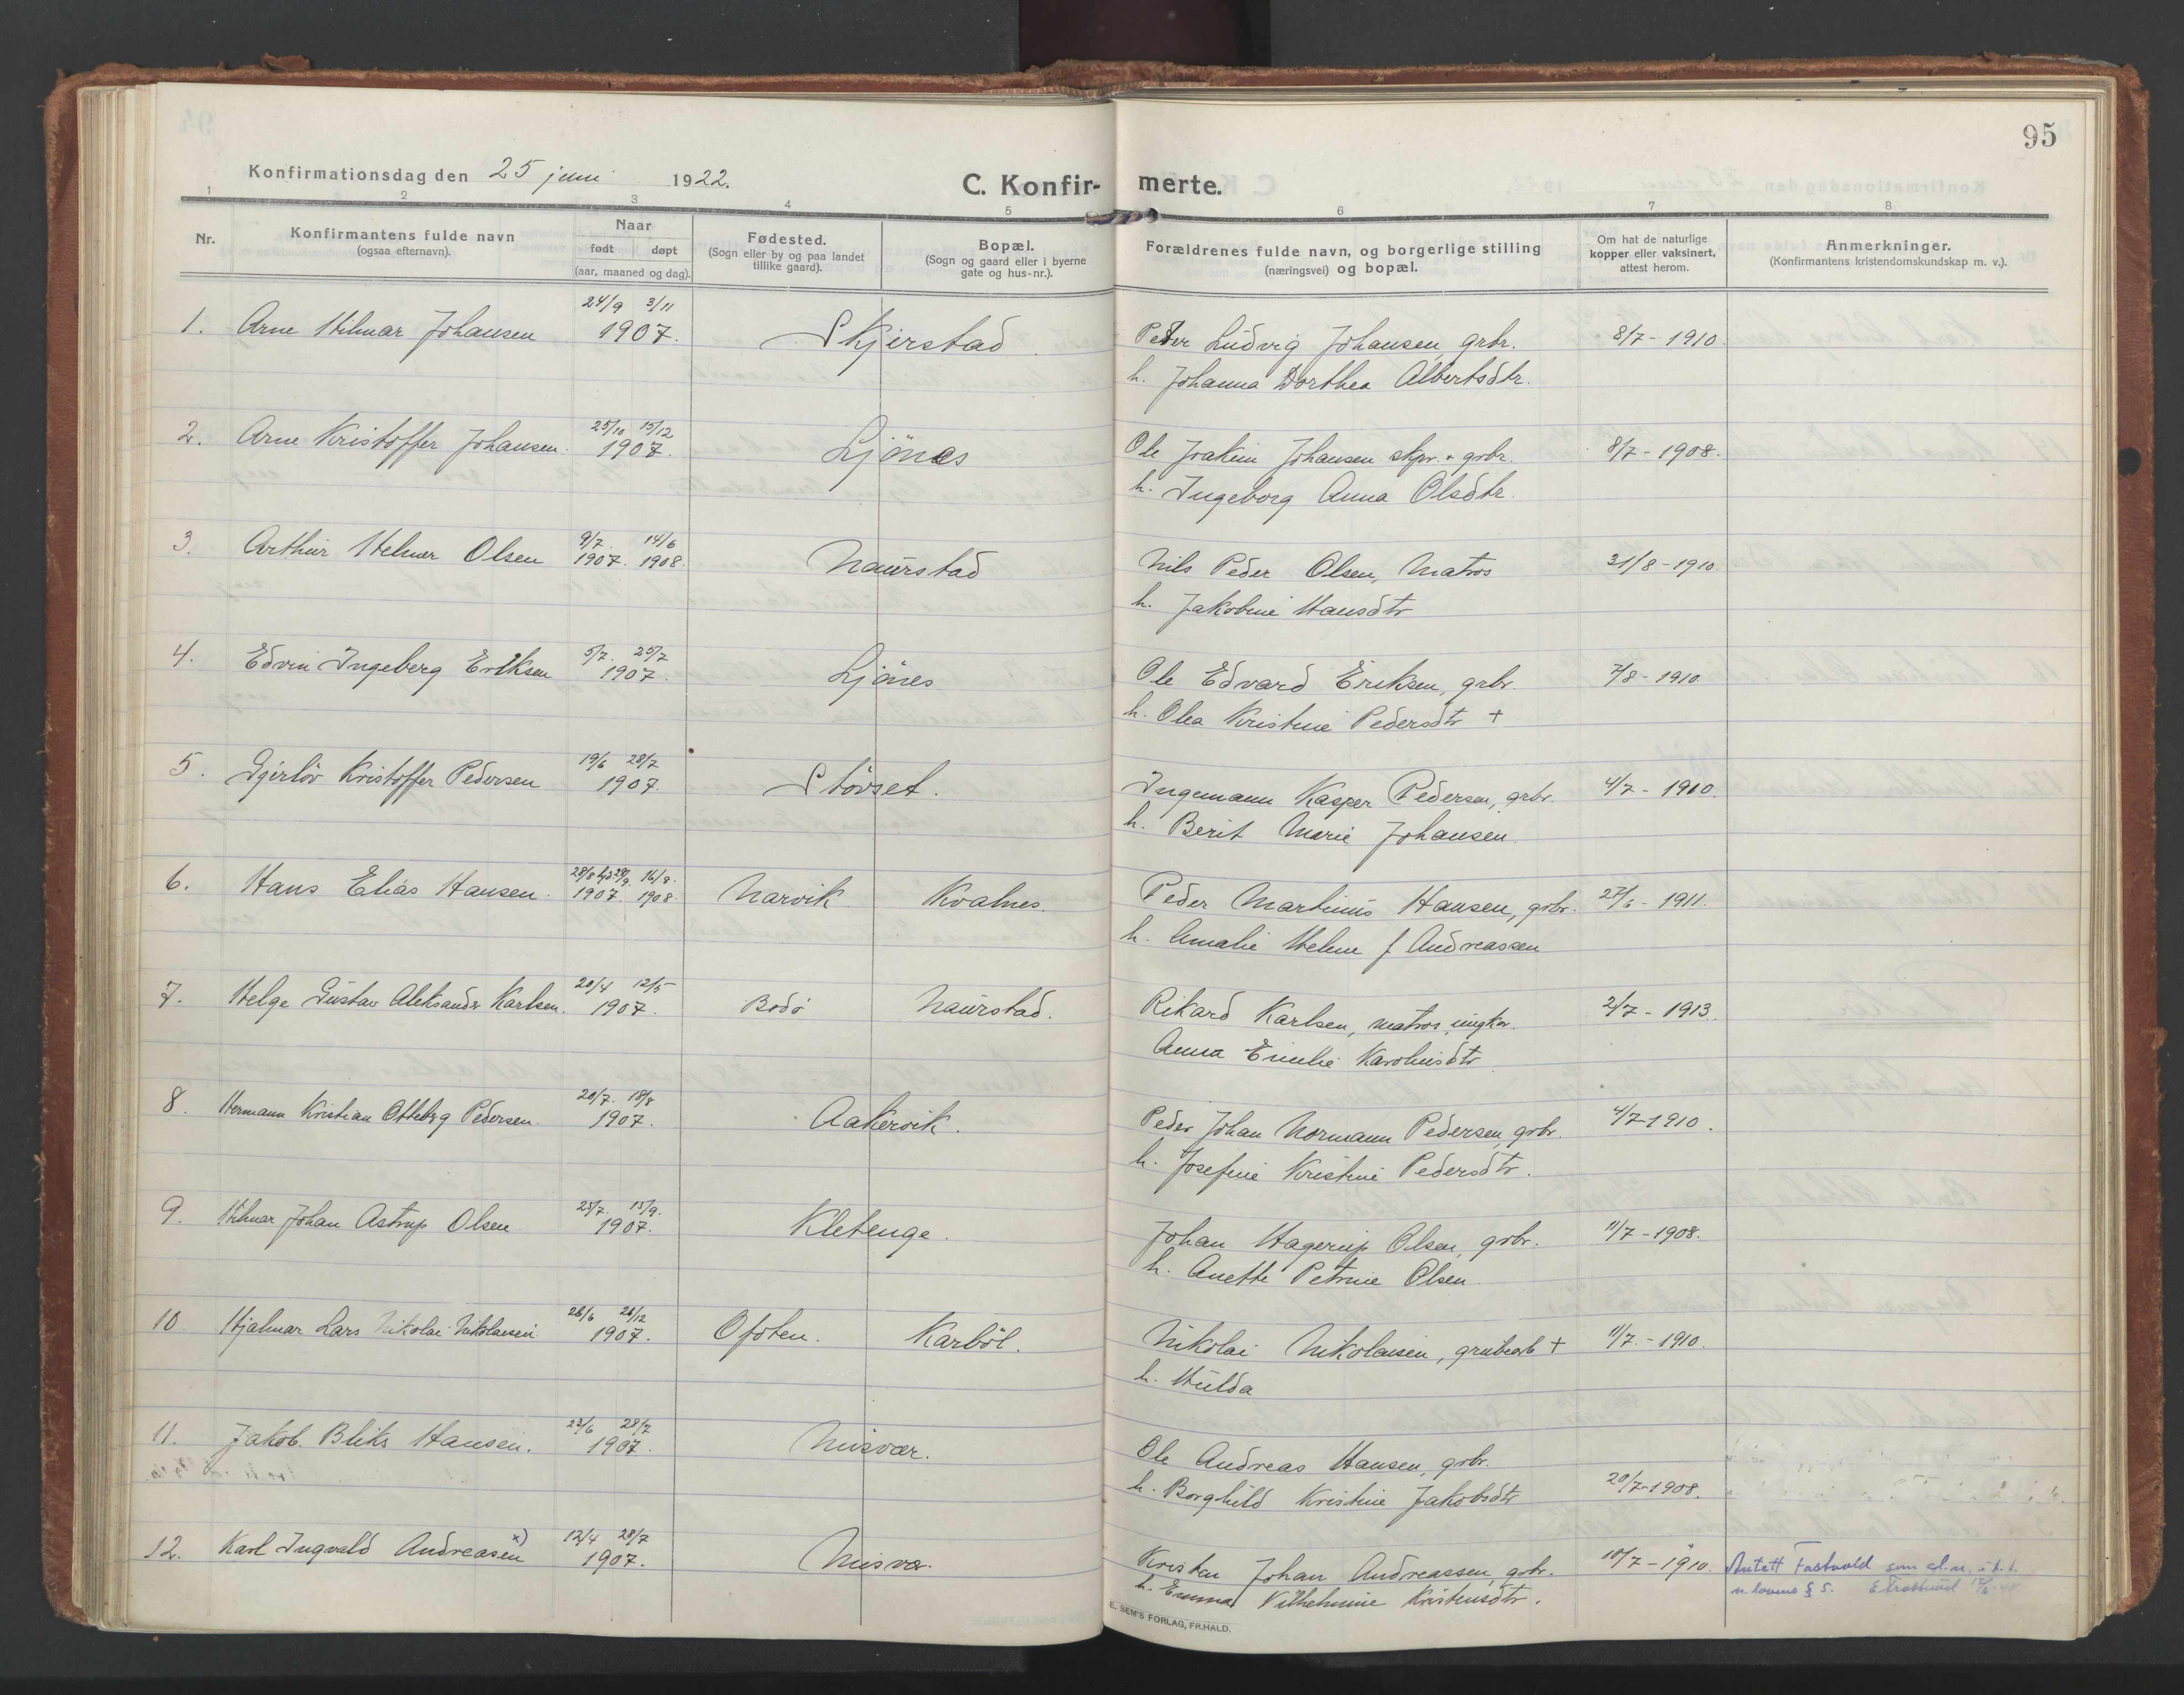 95
Konfirmationsdag den 25 juni 1922.
C. Konfir- merte.
1 2 3 4 5 6 7 8
Nr.
Konfirmantens fulde navn
(ogsaa efternavn).
Naar
født døpt
(aar, maaned og dag).
Fødested.
(Sogn eller by og paa landet
tillike gaard).
Bopæl.
(Sogn og gaard eller i byerne
gate og hus-nr.).
Forældrenes fulde navn, og borgerlige stilling
(næringsvei) og bopæl.
Om hat de naturlige
kopper eller vaksinert,
attest herom.
Anmerkninger.
(Konfirmantens kristendomskundskap m. v.).
24/9 3/11
1. Arne Hilmar Johansen 1907. Skjerstad Peder Ludvig Johansen, grbr. 8/7 - 1910.
h. Johanna Dorthea Albertsdtr.
25/10 15/12
2. Arne Kristoffer Johansen. 1907. Ljönes Ole Joakim Johansen skpr. + grbr. 8/7 - 1908.
h. Ingeborg Anna Olsdtr.
9/7. 14/6
3. Arthur Helmer Olsen 1907. 1908. Naurstad Nils Peder Olsen, Matros 31/8 - 1910.
h. Jakobine Hansdtr
5/7. 25/7
4. Edvin Ingeberg Eriksen 1907. Ljönes Ole Edvard Eriksen, grbr. 7/8 - 1910
h. Olea Kristine Pedersdtr +
19/6 28/7
5. Gjerlöv Kristoffer Pedersen 1907. Stövset. Ingemann Kasper Pedersen, grbr. 4/7 - 1910.
h. Berit Marie Johansen.
28/8 hjd 29/9. 16/8.
6. Hans Elias Hansen. 1907 1908. Narvik. Kvalnes. Peder Martinus Hansen, grbr. 27/6 - 1911.
h. Amalie Helene f. Andreassen
20/4 12/5
7. Helge Gustav Aleksander Karlsen. 1907. Bodö Naurstad. Rikard Karlsen, matros, ungkar. 2/7 - 1913.
Anna Emelie Karolinsdtr
20/7. 18/8
8. Hermann Kristian Otteberg Pedersen. 1907. Aakervik. Peder Johan Normann Pedersen, grbr. 4/7 - 1910.
h. Josefine Kristine Pedersdtr.
25/7. 15/9.
9. Hilmar Johan Astrup Olsen 1907. Kletenge. Johan Hagerup Olsen, grbr. 11/7 - 1908.
h. Anette Petrine Olsen
26/6 26/12
10. Hjalmar Lars Nikolai Nikolaisen 1907. Ofoten. Karböl. Nikolai Nikolaisen, grubearb + 11/7. - 1910.
h. Hulda
23/6 28/7
11. Jakob. Bliks Hansen. 1907. Misvær. Ole Andreas Hansen, grbr.
h. Borghild Kristine Jakobsdtr 20/7 - 1908.
12/4 28/7
12. Karl Ingvald Andreasen x) 1907. Misvær. Kristen Johan Andreassen, grbr. 10/7 - 1910. Antatt Fastvold som sl.n. i h.t.
h. Emma Vilhelmine Kristensdtr. n.lovens § 5.
E. SEM'S FORLAG, FR.HALD.